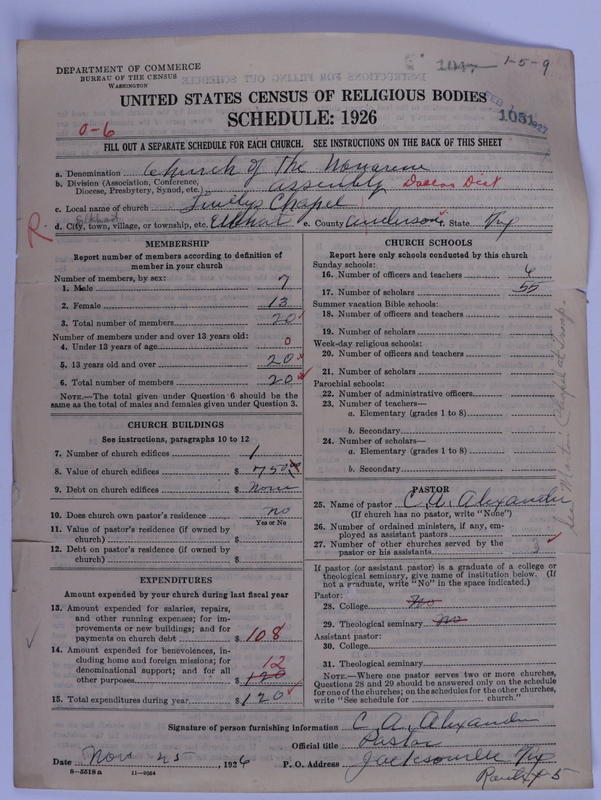 1047 1-5-9
DEPARTMENT OF COMMERCE
BUREAU OF THE CENSUS
WASHINGTON
UNITED STATES CENSUS OF RELIGIOUS BODIES
SCHEDULE: 1926
1051
0-6
FILL OUT A SEPARATE SCHEDULE FOR EACH CHURCH. SEE INSTRUCTIONS ON THE BACK OF THIS SHEET
a. Denomination Church of The Nazarene
b. Division (Association, Conference, Diocese, Presbytery, Synod, etc.) assembly Dallas Dist
c. Local name of church Chapel
R. Elkhart
d. City, town, village, or township, etc. Elkhart e. County Anderson f. State Tex
MEMBERSHIP
Report number of members according to definition of
member in your church
Number of members, by sex:
1. Male 7
2. Female 13
3. Total number of members 20
Number of members under and over 13 years old:
4. Under 13 years of age 0
5. 13 years old and over 20
6. Total number of members 20
NOTE.—The total given under Question 6 should be
same as the total of males and females given under Question 3.
CHURCH BUILDINGS
See instructions, paragraphs 10 to 12
7. Number of church edifices 1
8. Value of church edifices $ 750
9. Debt on church edifices $ None
10. Does church own pastor's residence no
Yes or No
11. Value of pastor's residence (if owned by
church) $
12. Debt on pastor's residence (if owned by
church) $
EXPENDITURES
Amount expended by your church during last fiscal year
13. Amount expended for salaries, repairs,
and other running expenses; for im-
provements or new buildings; and for
payments on church debt $ 108
14. Amount expended for benevolences, in-
cluding home and foreign missions; for
denominational support; and for all 12
other purposes $ 120
15. Total expenditures during year $ 120
CHURCH SCHOOLS
Report here only schools conducted by this church
Sunday schools:
16. Number of officers and teachers 6
17. Number of scholars 55
Summer vacation Bible schools:
18. Number of officers and teachers
19. Number of scholars
Week-day religious schools:
20. Number of officers and teachers
21. Number of scholars
Parochial schools:
22. Number of administrative officers
23. Number of teachers—
a. Elementary (grades 1 to 8)
b. Secondary
24. Number of scholars—
a. Elementary (grades 1 to 8)
b. Secondary
PASTOR
25. Name of pastor C. A. Alexander
(If church has no pastor, write "None")
26. Number of ordained ministers, if any, em-
ployed as assistant pastors
27. Number of other churches served by the
pastor or his assistants 3
If pastor (or assistant pastor) is a graduate of a college or
theological seminary, give name of institution below. (If
not a graduate, write "No" in the space indicated.)
Pastor:
28. College No
29. Theological seminary No
Assistant pastor:
30. College
31. Theological seminary
NOTE.—Where one pastor serves two or more churches,
Questions 28 and 29 should be answered only on the schedule
for one of the churches; on the schedules for the other churches,
write "See schedule for church."
See Martin Chapel at Troup.
Signature of person furnishing information C. A. Alexander
Official title Pastor
Date Nov 25, 1926 P. O. Address Jacksonville Tex
Route 5
8—5518 a 11—9054